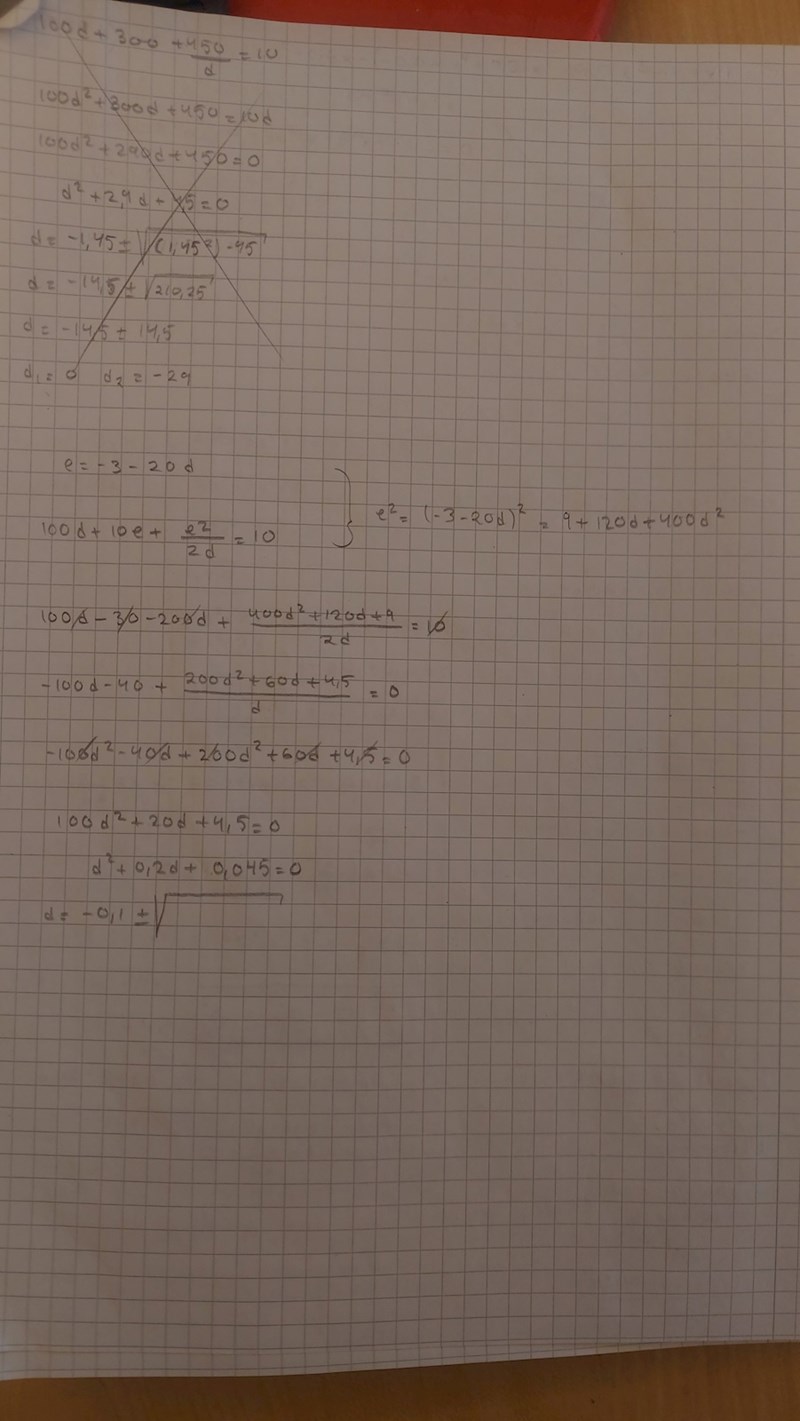 100d + 300 + 450/d = 10
100d² + 300d + 450 = 10d
100d² + 290d + 450 = 0
d² + 2,9d + 45 = 0
d = -1,45 ± √((1,45²) - 45)
d = -14,5 ± √210,25
d = -14,5 ± 14,5
d₁ = 0 d₂ = -29
e = -3 - 20d
100d + 10e + e²/2d = 10 } e² = (-3-20d)² = 9 + 120d + 400d²
100d - 30 - 200d + (400d² + 120d + 9)/2d = 10
-100d - 40 + (200d² + 60d + 4,5)/d = 0
-100d² - 40d + 200d² + 60d + 4,5 = 0
100d² + 20d + 4,5 = 0
d² + 0,2d + 0,045 = 0
d = -0,1 ± √